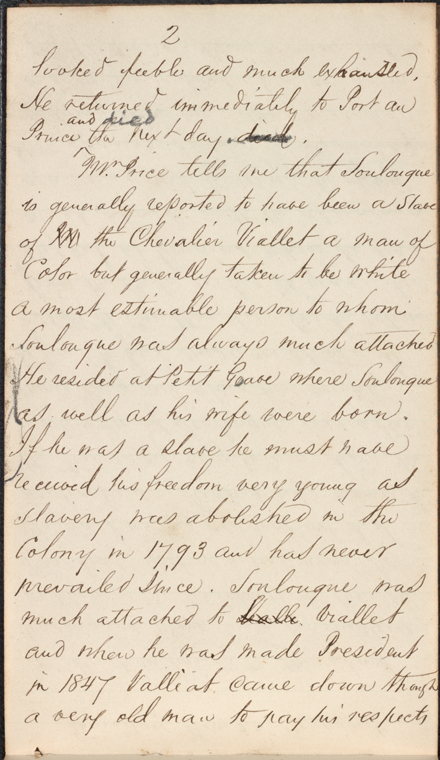 2
looked feeble and much exhausted.
He returned immediately to Port au
and died
Prince the next day died.
Mr. Price tells me that Soulouque
is generally reported to have been a Slave
of the Chevalier Viallet a man of
Color but generally taken to be white
a most estimable person to whom
Soulouque was always much attached
He resided at Petit Goave where Soulouque
as well as his wife were born.
If he was a slave he must have
received his freedom very young as
slavery was abolished in the
Colony in 1793 and has never
prevailed since. Soulouque was
much attached to Viallet
and when he was made President
in 1847 Valliat came down though
a very old man to pay his respects